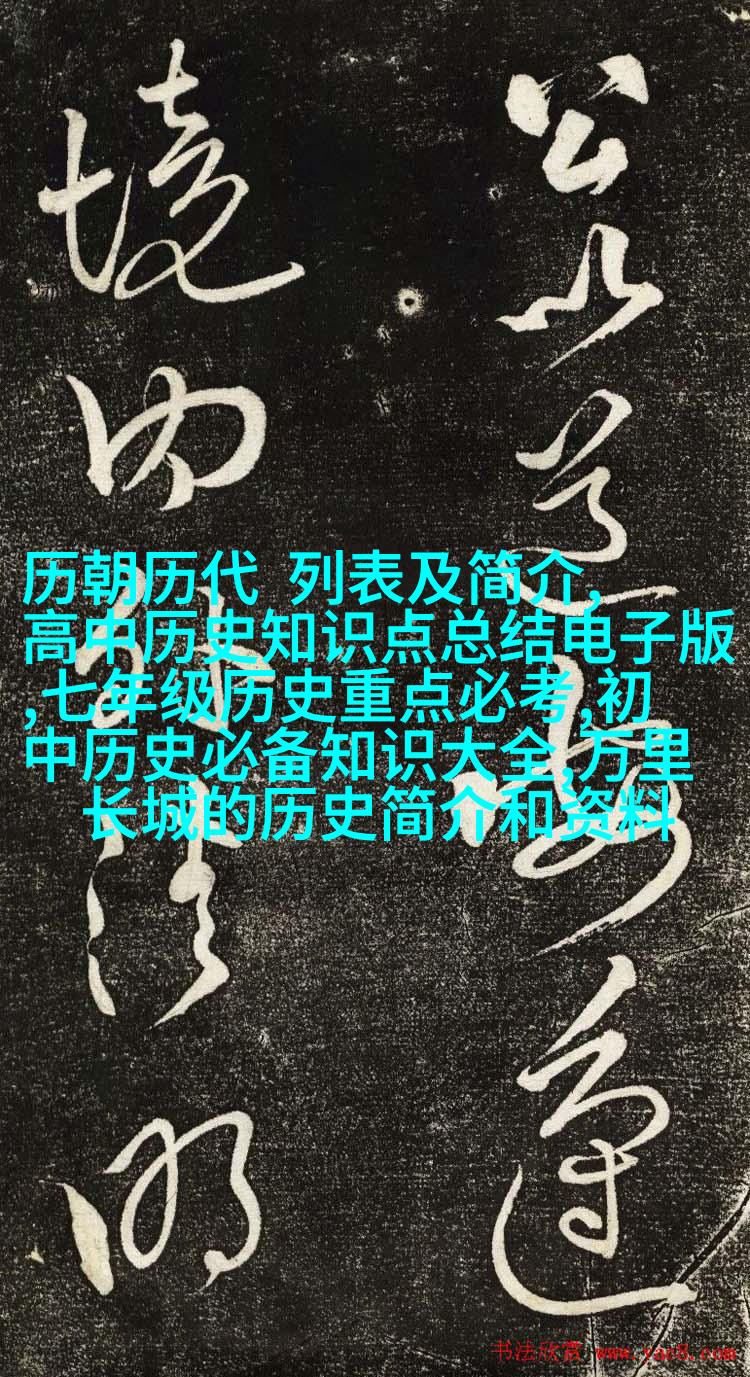 公以道
境内
明
历朝历代 列表及简介,
高中历史知识点总结电子版
,七年级历史重点必考,初
中历史必备知识大全,万里
长城的历史简介和资料
书法欣赏 www.yac8.com